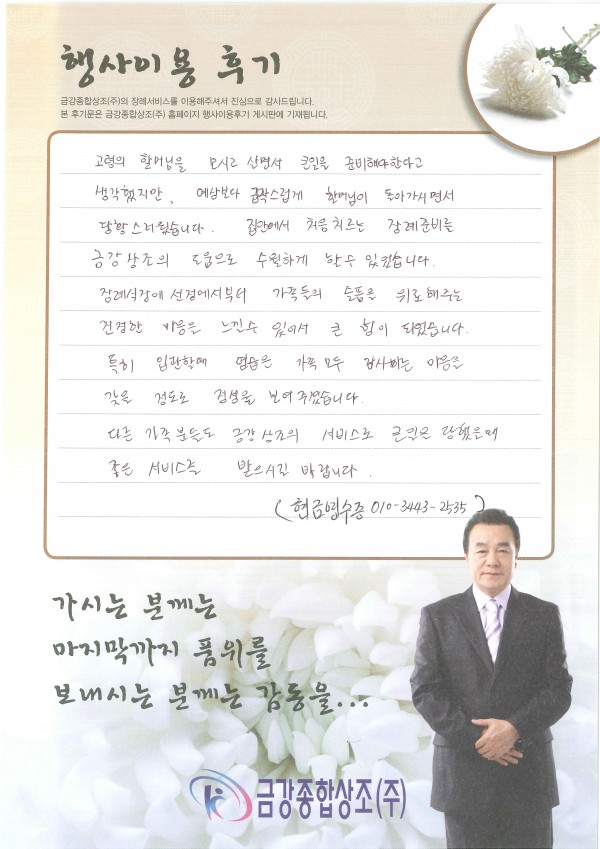 행사이용 후기
금강종합상조(주)의 장례서비스를 이용해주셔서 진심으로 감사드립니다.
본 후기문은 금강종합상조(주) 홈페이지 행사이용후기 게시판에 기재됩니다.
고령의 할머님을 모시고 살면서 큰일을 준비해야한다고
생각했지만, 예상보다 급작스럽게 할머님이 돌아가시면서
당황스러웠습니다. 집안에서 처음 치르는 장례준비를
금강상조의 도움으로 수월하게 할수 있었습니다.
장례식장에 선정에서부터 가족들의 슬픔을 위로해주는
진정한 마음을 느낄수 있어서 큰 힘이 되었습니다.
특히 입관할때 염습은 가족 모두 감사하는 마음을
갖을 정도로 정성을 보여주셨습니다.
다른 가족분들도 금강상조의 서비스로 큰일을 당했을때
좋은 서비스를 받으시길 바랍니다.
(현금영수증 010-3443-2535)
가시는 분께는
마지막까지 품위를
보내시는 분께는 감동을...
금강종합상조(주)